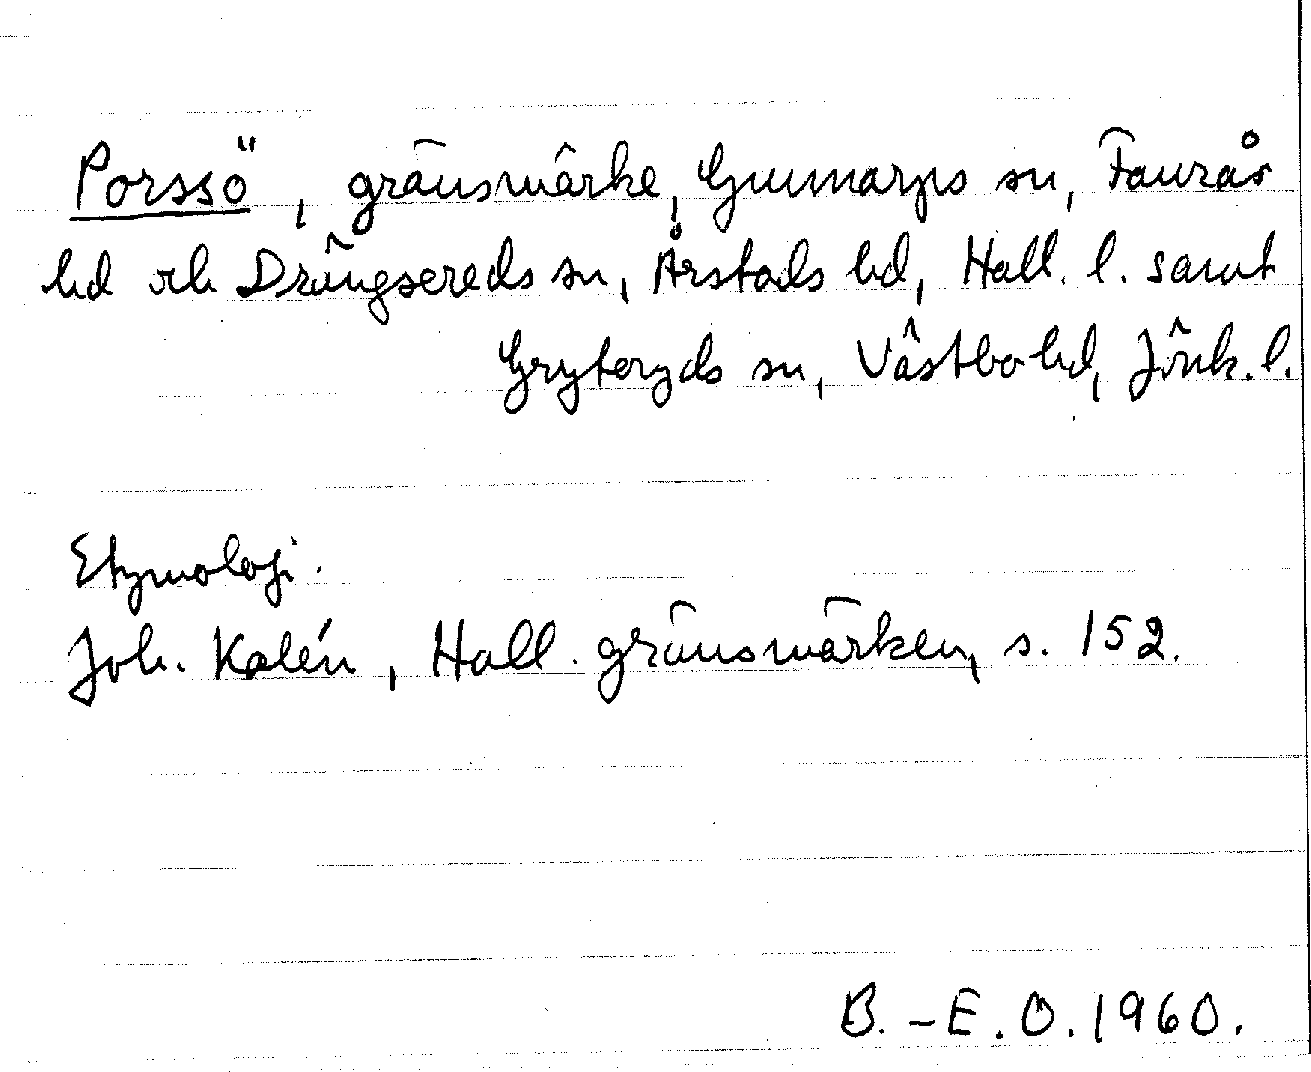 Porssö, gränsmärke, Gunnarps sn, Faurås
hd o͡ch Drängsereds sn, Årstads hd, Hall. l. samt
Gryteryds sn, Västbo hd, Jönk. l.
Etymologi.
Joh. Kalén, Hall. gränsmärken, s. 152.
B.-E. O. 1960.